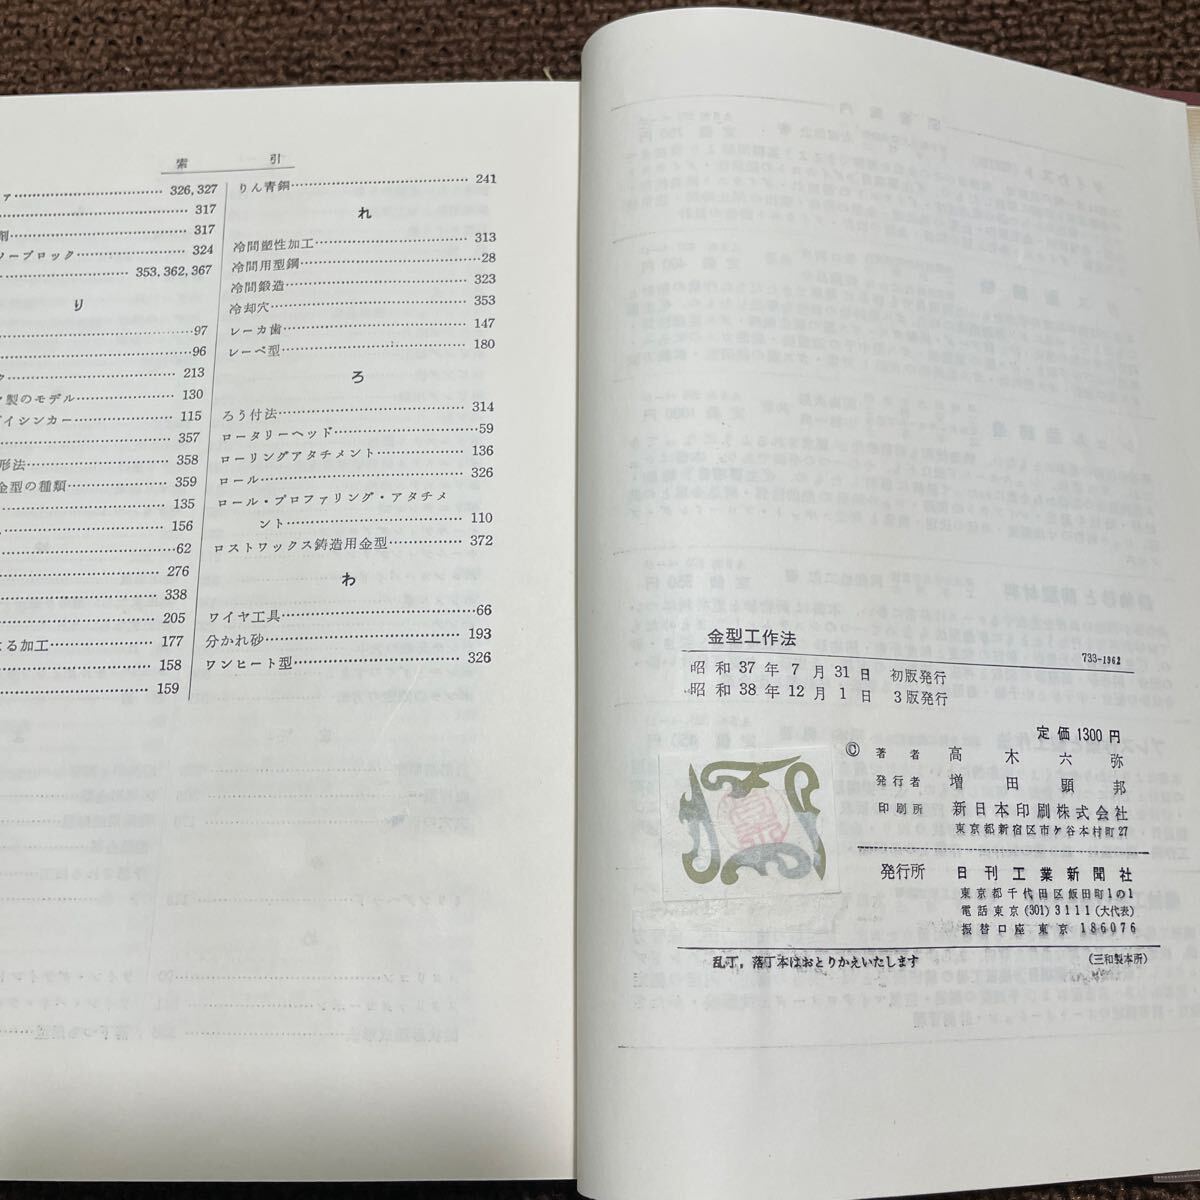 索引
ァ 326, 327
317
剤 317
ソーブロック 324
353, 362, 367
り
97
96
ク 213
ク製のモデル 130
ダイシンカー 115
357
形法 358
金型の種類 359
135
156
62
276
338
205
よる加工 177
158
159
りん青銅 241
れ
冷間塑性加工 313
冷間用型鋼 28
冷間鍛造 323
冷却穴 353
レーカ歯 147
レーペ型 180
ろ
ろう付法 314
ロータリーヘッド 59
ローリングアタチメント 136
ロール 326
ロール・プロファリング・アタチメ
ント 110
ロストワックス鋳造用金型 372
わ
ワイヤ工具 66
分かれ砂 193
ワンヒート型 326
金型工作法
733-1962
昭和37年7月31日 初版発行
昭和38年12月1日 3版発行
定価1300円
© 著者 高木六弥
発行者 増田顕邦
印刷所 新日本印刷株式会社
東京都新宿区市ケ谷本村町27
発行所 日刊工業新聞社
東京都千代田区飯田町1の1
電話東京(301)3111(大代表)
振替口座東京186076
乱丁,落丁本はおとりかえいたします
(三和製本所)